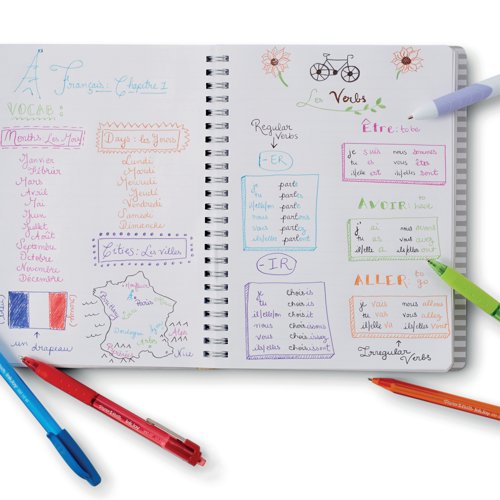 Français: Chapitre 1
VOCAB:
Months: Les Mois
Janvier
Février
Mars
Avril
Mai
Juin
Juillet
Août
Septembre
Octobre
Novembre
Décembre
un drapeau
Days: les Jours
Lundi
Mardi
Mercredi
Jeudi
Vendredi
Samedi
Dimanche
Cities: Les villes
Paris
Nice
Les Verbs
Regular
Verbs
-ER
je parle
tu parles
il/elle/on parle
nous parlons
vous parlez
ils/elles parlent
-IR
je choisis
tu choisis
il/elle/on choisit
nous choisissons
vous choisissez
ils/elles choisissent
Être: to be
je suis nous sommes
tu es vous êtes
il/elle est ils/elles sont
AVOIR: to have
j' ai nous avons
tu as vous avez
il/elle a ils/elles ont
ALLER: to go
je vais nous allons
tu vas vous allez
il/elle va ils/elles vont
Irregular
Verbs